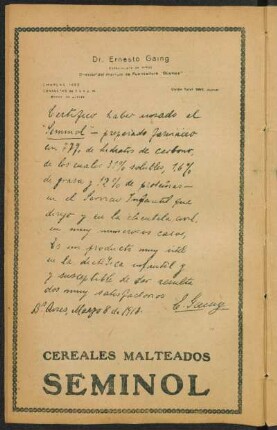 Dr. Ernesto Gaing
Director del Instituto de Puericultura
Certifico haber usado el
"Seminol" – preparado farináceo
con 77% de hidratos de carbono,
de los cuales 31% solubles, 1.6%
de grasa y 12% de proteínas –
en el Servicio Infantil que
dirijo y en la clientela civil
en muy numerosos casos,
Es un producto muy útil
en la dietética infantil y
y susceptible de dar resulta
dos muy satisfactorios
Bs Aires, Marzo 8 de 1918.
E. Gaing
CEREALES MALTEADOS
SEMINOL